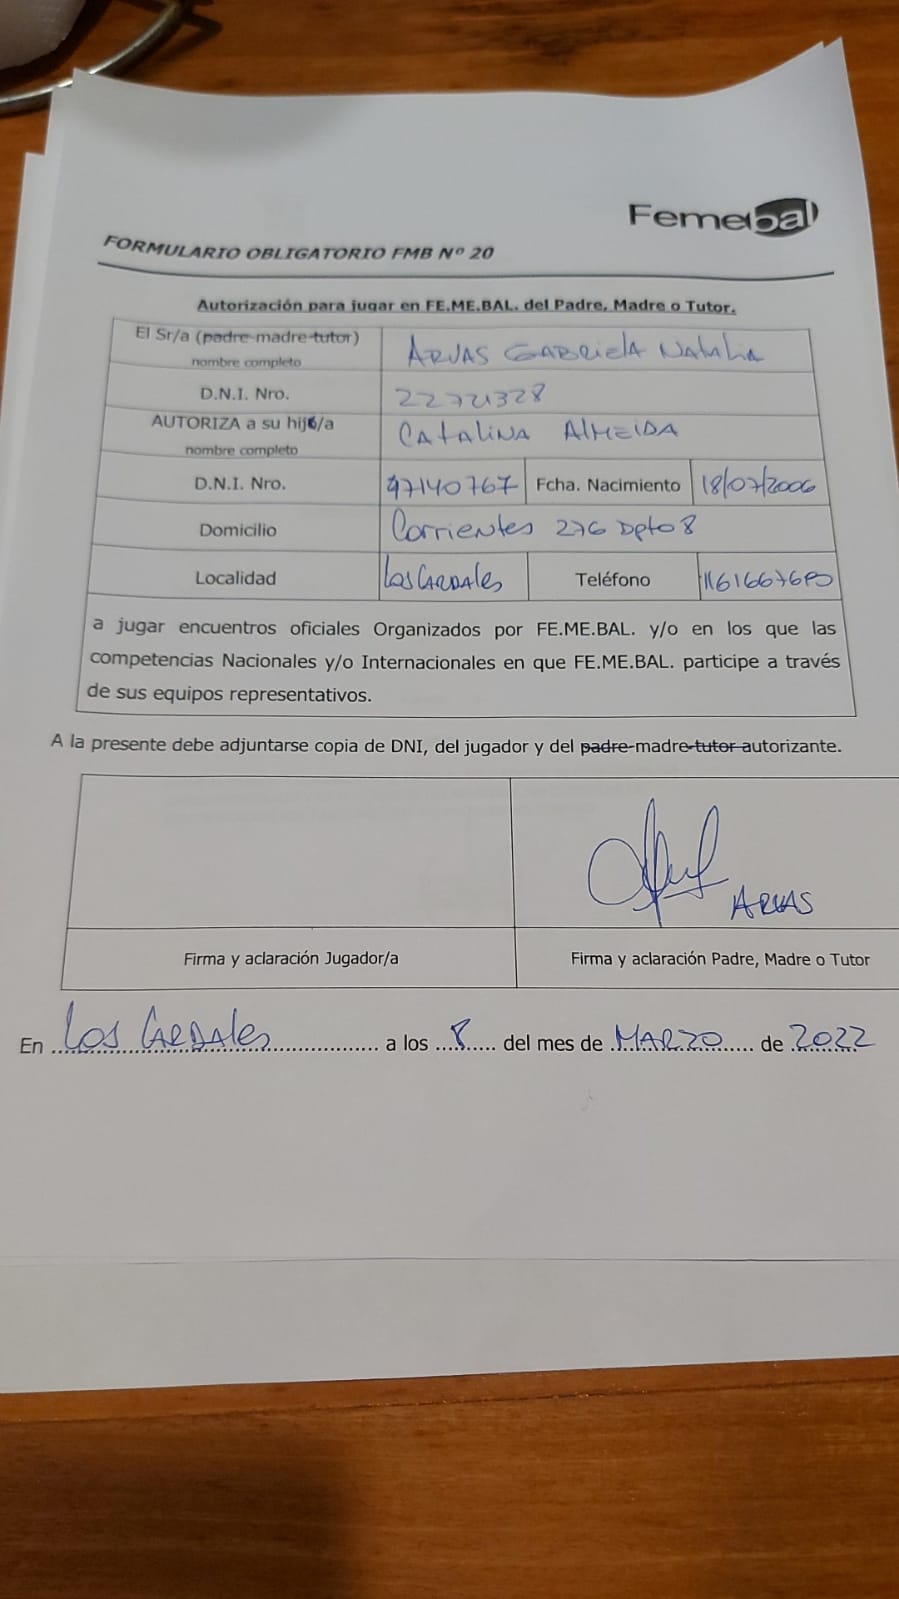 Femebal
FORMULARIO OBLIGATORIO FMB Nº 20
Autorización para jugar en FE.ME.BAL. del Padre, Madre o Tutor.
El Sr/a (padre-madre-tutor) nombre completo ARUAS GABRIELA NATALIA
D.N.I. Nro. 22721328
AUTORIZA a su hij/a nombre completo CATALINA ALMEIDA
D.N.I. Nro. 47140767 Fcha. Nacimiento 18/07/2006
Domicilio Corrientes 276 Dpto 8
Localidad Los CARDALes Teléfono
a jugar encuentros oficiales Organizados por FE.ME.BAL. y/o en los que las
competencias Nacionales y/o Internacionales en que FE.ME.BAL. participe a través
de sus equipos representativos.
A la presente debe adjuntarse copia de DNI, del jugador y del padre-madre-tutor autorizante.
ARUAS
Firma y aclaración Jugador/a Firma y aclaración Padre, Madre o Tutor
En Los CARDALes a los 8 del mes de MARZO de 2022